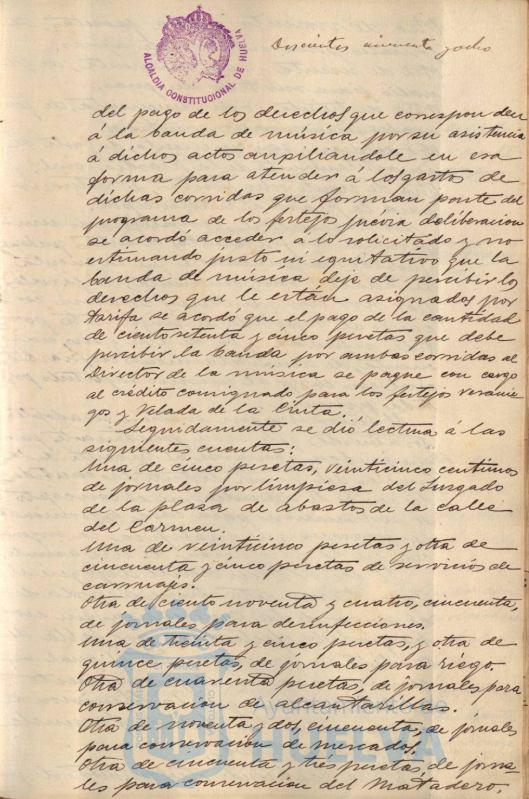 ALCALDIA CONSTITUCIONAL DE HUELVA
Doscientos cincuenta y ocho
del pago de los derechos que corresponden
á la banda de música por su asistencia
á dichos actos ampliandole en esa
forma para atender á los gastos de
dichas corridas que forman parte del
programa de los festejos prévia deliberacion
se acordó acceder á lo solicitado y no
estimando justo ni equitativo que la
banda de música deje de percibir los
derechos que le están asignados por
tarifa se acordó que el pago de la cantidad
de ciento setenta y cinco pesetas que debe
percibir la banda por ambas corridas al
Director de la música se pague con cargo
al crédito consignado para los festejos veranie
gos y Velada de la Cinta.
Seguidamente se dió lectura á las
siguientes cuentas:
Una de cinco pesetas, veinticinco centimos
de jornales por limpiesa del Juzgado
de la plaza de abastos de la calle
del Carmen.
Una de veinticinco pesetas y otra de
cincuenta y cinco pesetas de servicios de
carruajes.
Otra de ciento noventa y cuatro, cincuenta,
de jornales para desinfecciones.
Una de treinta y cinco pesetas, y otra de
quince pesetas, de jornales para riego.
Otra de cuarenta pesetas, de jornales para
conservacion de alcantarillas.
Otra de noventa y dos, cincuenta, de jornales
para conservacion de mercados.
Otra de cincuenta y tres pesetas, de jorna-
les para conservacion del Matadero.
HUELVA